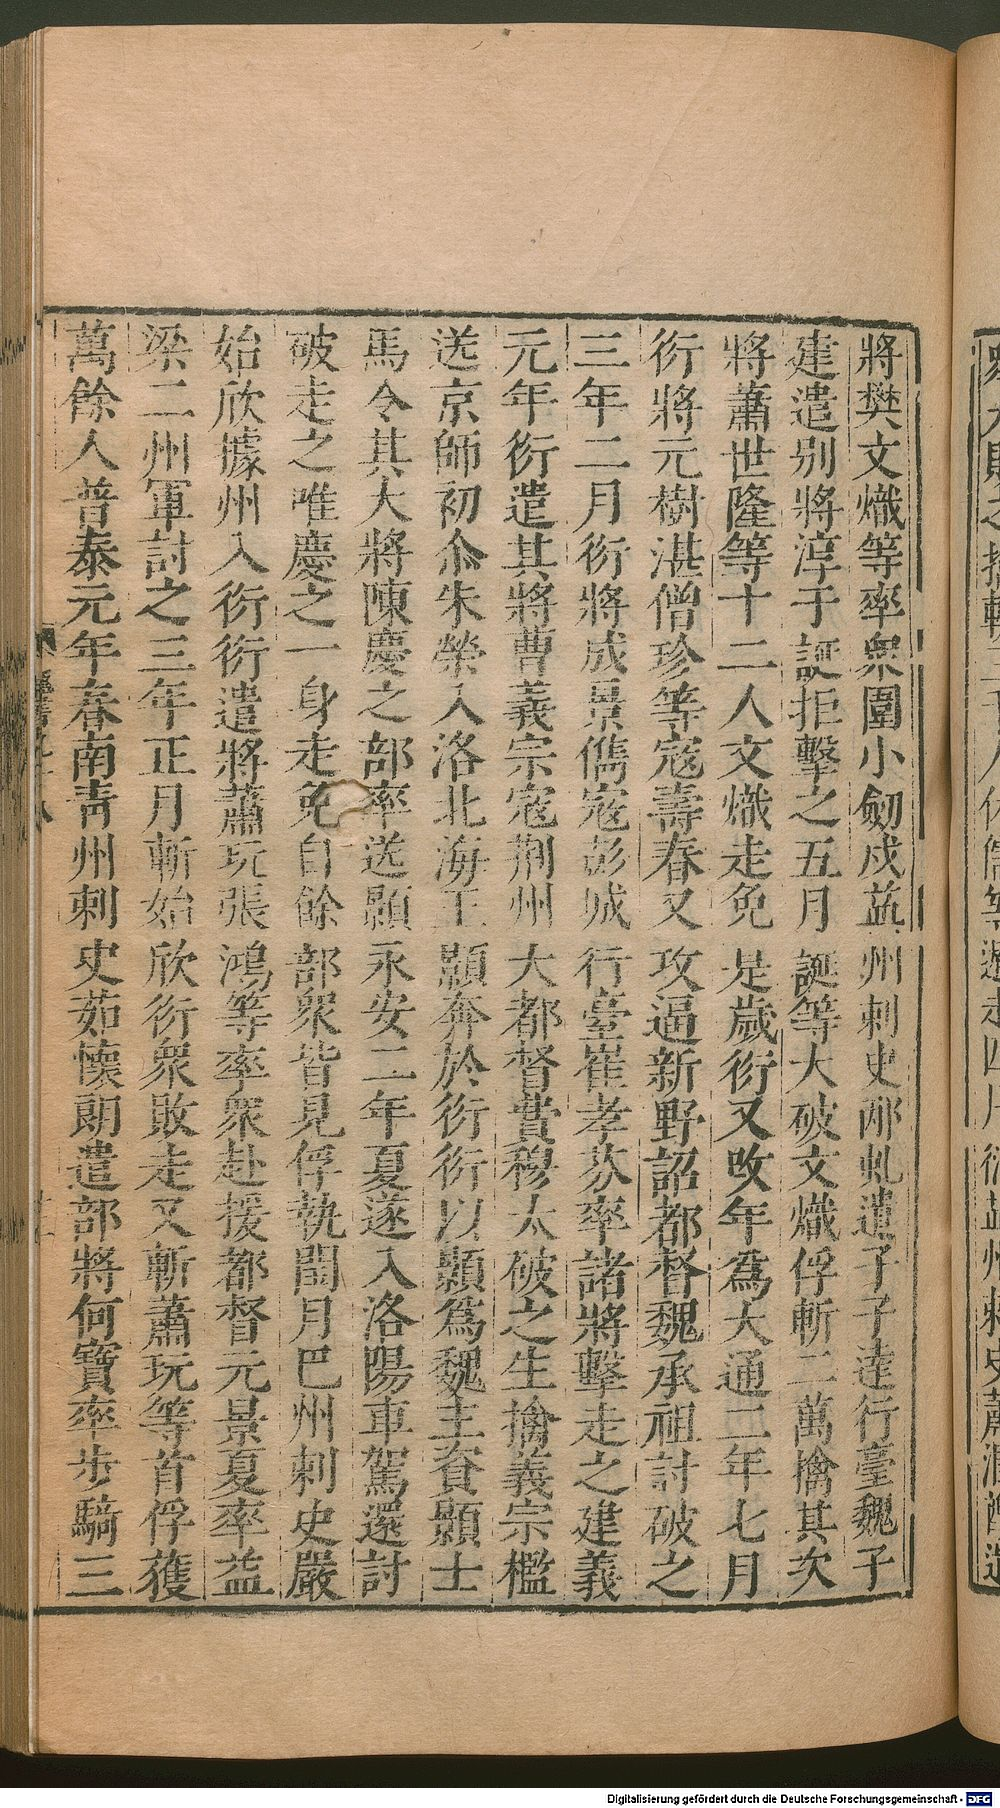 將樊文熾等率衆圍小劒戍益州刺史邴虬遣子子達行臺魏子
建遣别將淳于誕拒擊之五月誕等大破文熾俘斬二萬擒其次
將蕭世隆等十二人文熾走免是歲衍又改年爲大通二年七月
衍將元樹湛僧珍等寇壽春又攻逼新野詔都督魏承祖討破之
三年二月衍將成景儁寇彭城行臺崔孝芬率諸將擊走之建義
元年衍遣其將曹義宗寇荆州大都督費穆大破之生擒義宗檻
送京師初尒朱榮入洛北海王顥奔於衍衍以顥爲魏主資顥士
馬令其大將陳慶之部率送顥永安二年夏遂入洛陽車駕還討
破走之唯慶之一身走免自餘部衆皆見俘執閏月巴州刺史嚴
始欣據州入衍衍遣將蕭玩張鴻等率衆赴援都督元景夏率益
梁二州軍討之三年正月斬始欣衍衆敗走又斬蕭玩等首俘獲
萬餘人普泰元年春南青州刺史茹懷朗遣部將何寶率步騎三
Digitalisierung gefördert durch die Deutsche Forschungsgemeinschaft - DFG